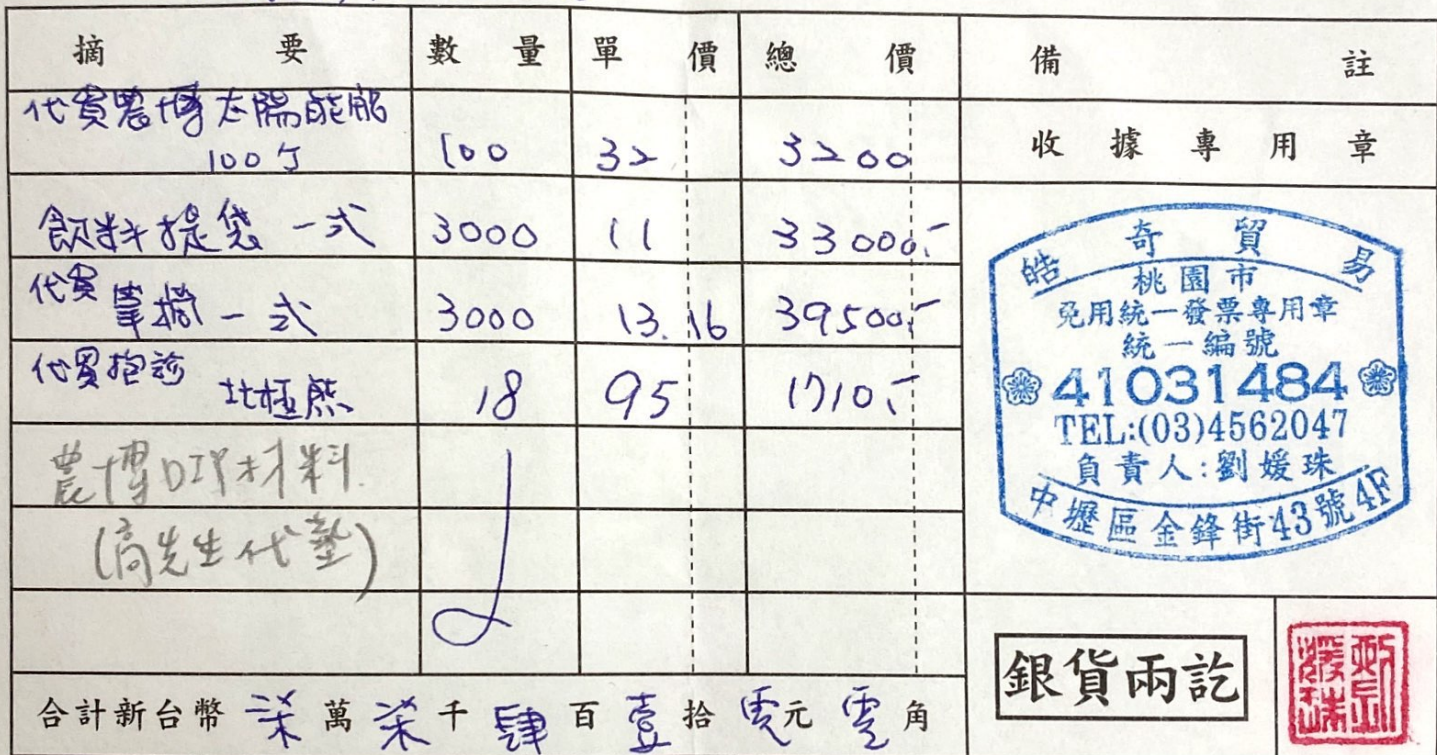 摘要 數量 單價 總價 備註
代買農博太陽能船
100勺 100 32 3200
收據專用章
飲料提袋 一式 3000 11 33000.-
代買
筆擱 一式 3000 13.16 39500.-
代買抱診
北極熊 18 95 1710.-
農博DIY材料
(高先生代墊)
皓奇貿易
桃園市
免用統一發票專用章
統一編號
41031484
TEL:(03)4562047
負責人:劉媛珠
中壢區金鋒街43號4F
銀貨兩訖
劉媛珠
合計新台幣 柒萬柒千肆百壹拾零元零角